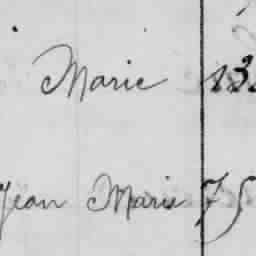 Marie 13
Jean Marie 75